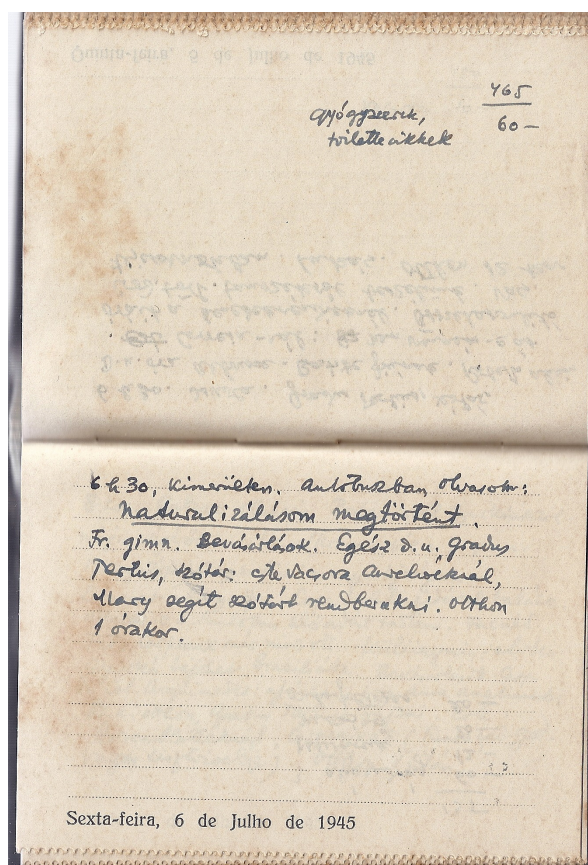 465
gyógyszerek,
60 —
toilettecikkek
6 h 30, kimerülten. Autóbuszban olvasom:
naturalizálásom megtörtént.
Fr. gimn. Bevásárlások. Egész d. u. Gradus
Tertius, szótár: este vacsora Aurelióéknál,
Mary segít szótárt rendberakni. Otthon
1 órakor.
Sexta-feira, 6 de Julho de 1945